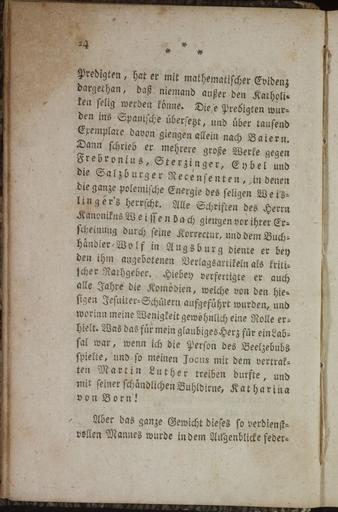 24
* * *
Predigten, hat er mit mathematischer Evidenz
dargethan, daß niemand außer den Katholi-
ken selig werden könne. Diese Predigten wur-
den ins Spanische übersetzt, und über tausend
Exemplare davon giengen allein nach Baiern.
Dann schrieb er mehrere große Werke gegen
Frebronius, Sterzinger, Eybel und
die Salzburger Recensenten, in denen
die ganze polemische Energie des seligen Weis-
linger's herrscht. Alle Schriften des Herrn
Kanonikus Weissenbach giengen vor ihrer Er-
scheinung durch seine Korrectur, und dem Buch-
händler Wolf in Augsburg diente er bey
den ihm angebotenen Verlagsartikeln als kriti-
scher Rathgeber. Hiebey verfertigte er auch
alle Jahre die Komödien, welche von den hie-
sigen Jesuiter-Schülern aufgeführt wurden, und
worinn meine Wenigkeit gewöhnlich eine Rolle er-
hielt. Was das für mein glaubiges Herz für ein Lab-
sal war, wenn ich die Person des Beelzebubs
spielte, und so meinen Jocus mit dem vertrak-
ten Martin Luther treiben durfte, und
mit seiner schändlichen Buhldirne, Katharina
von Born!
Aber das ganze Gewicht dieses so verdienst-
vollen Mannes wurde in dem Augenblicke feder-